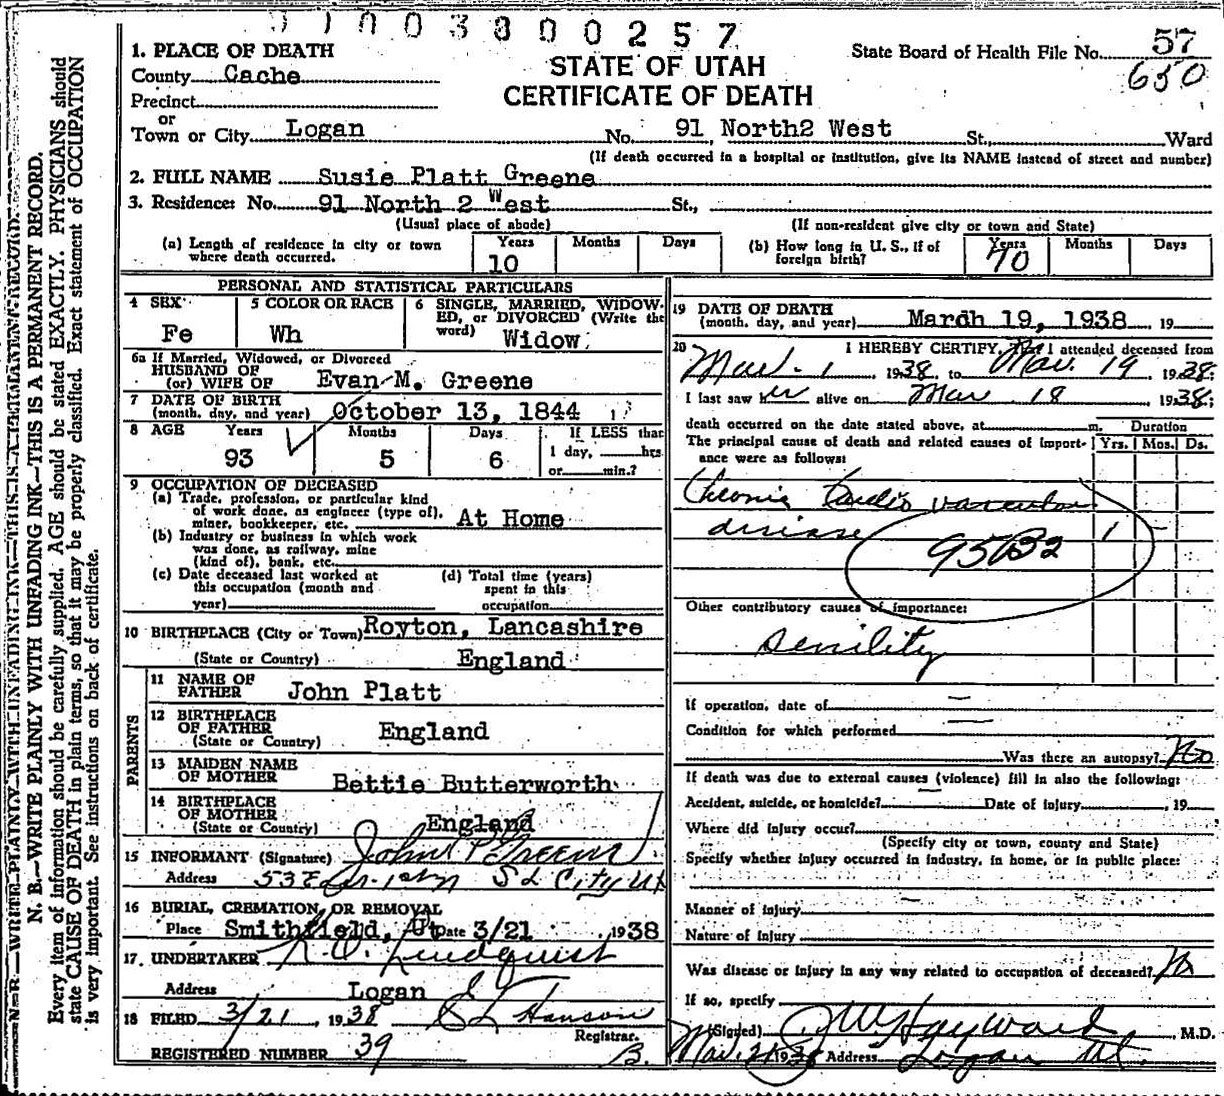 91003800257
1. PLACE OF DEATH
County Cache
Precinct
or
Town or City Logan No. 91 North2 West St., Ward
STATE OF UTAH
CERTIFICATE OF DEATH
State Board of Health File No. 57
650
(If death occurred in a hospital or institution, give its NAME instead of street and number)
2. FULL NAME Susie Platt Greene
3. Residence: No. 91 North 2 West St.,
(Usual place of abode) (If non-resident give city or town and State)
(a) Length of residence in city or town where death occurred. Years 10 Months Days
(b) How long in U. S., if of foreign birth? Years 70 Months Days
PERSONAL AND STATISTICAL PARTICULARS
4 SEX Fe
5 COLOR OR RACE Wh
6 SINGLE, MARRIED, WIDOW-
ED, or DIVORCED (Write the
word) Widow
6a If Married, Widowed, or Divorced
HUSBAND OF
(or) WIFE OF Evan M. Greene
7 DATE OF BIRTH
(month, day, and year) October 13, 1844
8 AGE Years 93 Months 5 Days 6 If LESS than
1 day, hrs
or min.?
9 OCCUPATION OF DECEASED
(a) Trade, profession, or particular kind
of work done, as engineer (type of),
miner, bookkeeper, etc. At Home
(b) Industry or business in which work
was done, as railway, mine
(kind of), bank, etc.
(c) Date deceased last worked at
this occupation (month and
year)
(d) Total time (years)
spent in this
occupation
10 BIRTHPLACE (City or Town) Royton, Lancashire
(State or Country) England
PARENTS
11 NAME OF
FATHER John Platt
12 BIRTHPLACE
OF FATHER England
(State or Country)
13 MAIDEN NAME
OF MOTHER Bettie Butterworth
14 BIRTHPLACE
OF MOTHER
(State or Country) England
15 INFORMANT (Signature) John P Greene
Address S L City Ut
16 BURIAL, CREMATION, OR REMOVAL
Place Smithfield, Ut Date 3/21 1938
17. UNDERTAKER Lindquist
Address Logan
18 FILED 3/21, 1938 Hanson
Registrar.
REGISTERED NUMBER 39 B.
19 DATE OF DEATH
(month, day, and year) March 19, 1938 19
20 I HEREBY CERTIFY, That I attended deceased from
Mar. 1 1938, to Mar. 19 1938;
I last saw her alive on Mar 18 1938;
death occurred on the date stated above, at m.
The principal cause of death and related causes of import-
ance were as follows:
Duration
Yrs. Mos. Ds.
Chronic Cardio vascular
disease 1
95B2
Other contributory causes of importance:
Senility
If operation, date of —
Condition for which performed —
Was there an autopsy? No
If death was due to external causes (violence) fill in also the following:
Accident, suicide, or homicide? — Date of injury , 19
Where did injury occur?
(Specify city or town, county and State)
Specify whether injury occurred in industry, in home, or in public place:
Manner of injury
Nature of injury
Was disease or injury in any way related to occupation of deceased? No
If so, specify
(Signed) J W Hayward M.D.
Mar. 21 1938 Address Logan Ut.
N. B.—WRITE PLAINLY WITH UNFADING INK—THIS IS A PERMANENT RECORD.
Every item of information should be carefully supplied. AGE should be stated EXACTLY. PHYSICIANS should
state CAUSE OF DEATH in plain terms, so that it may be properly classified. Exact statement of OCCUPATION
is very important. See instructions on back of certificate.